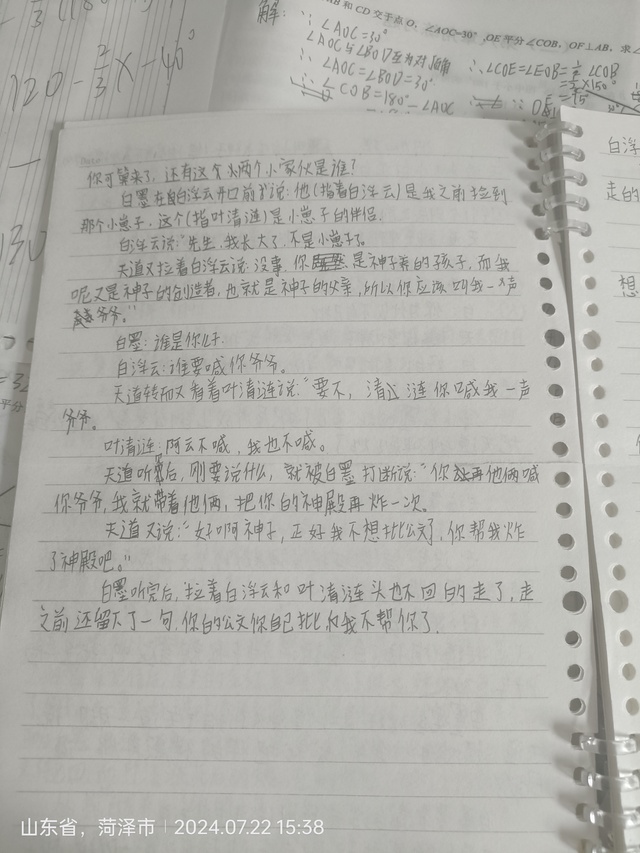 120 - 2/3 x - 40°
解:
AB 和 CD 交于点 O, ∠AOC=30°, OE 平分 ∠COB, OF⊥AB, 求∠
∵ ∠AOC=30°
∠AOC与∠BOD互为对顶角
∴ ∠AOC=∠BOD=30°
∠COB=180°-∠AOC
∴∠COE=∠EOB=½∠COB
=½×150°
=75°
你可算来了, 还有这个为两个小家伙是谁?
白墨在白浮云开口前才说: 他(指着白浮云)是我之前捡到
那个小崽子, 这个(指叶清涟)是小崽子的伴侣.
白浮云说:“先生, 我长大了, 不是小崽子了。
天道又拉着白浮云说: 没事, 你是神子养的孩子, 而我
呢又是神子的创造者, 也就是神子的父亲, 所以你应该叫我一声
爷爷。”
白墨: 谁是你儿子.
白浮云: 谁要喊你爷爷。
天道转而又看着叶清涟说:“要不, 清涟你喊我一声
爷爷。
叶清涟: 阿云不喊, 我也不喊。
天道听完后, 刚要说什么, 就被白墨打断说:“你再让他俩喊
你爷爷, 我就带着他俩, 把你的神殿再炸一次。
天道又说:“好啊神子, 正好我不想批公文了, 你帮我炸
了神殿吧。”
白墨听完后, 拉着白浮云和叶清涟头也不回的走了, 走
之前还留下了一句, 你的公文你自己批, 我不帮你了.
白浮
走的
想
平分
山东省，菏泽市 | 2024.07.22 15:38